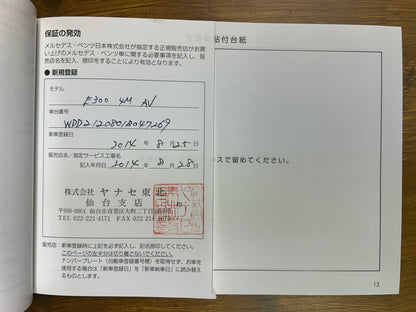 保証の発効
メルセデス・ベンツ日本株式会社が指定する正規販売店がお買
い上げのメルセデス・ベンツ車に関する必要事項を記入し、販
売店名を記入、捺印をすることにより有効となります。
● 新規登録
モデル
E300 4M AV
車台番号
WDD2120801B047269
新車登録日
2014 年 8 月 25 日
販売店名／指定サービス工場名
記入年月日 2014 年 8 月 28 日
株式会社 ヤナセ東北
仙台支店
〒980-0864 仙台市青葉区大町二丁目
TEL 022-221-4171 FAX 022-214
販売店：新車登録時に上記を必ず記入し、記名捺印してください。
このページの左半分は切り離さないでください。
ナンバープレート（自動車登録番号標）を取得せず、お車を
使用する場合は「新車登録日」を「新車納車日」に読み替え
るものとします。
貼付台紙
スで留めてください。
13